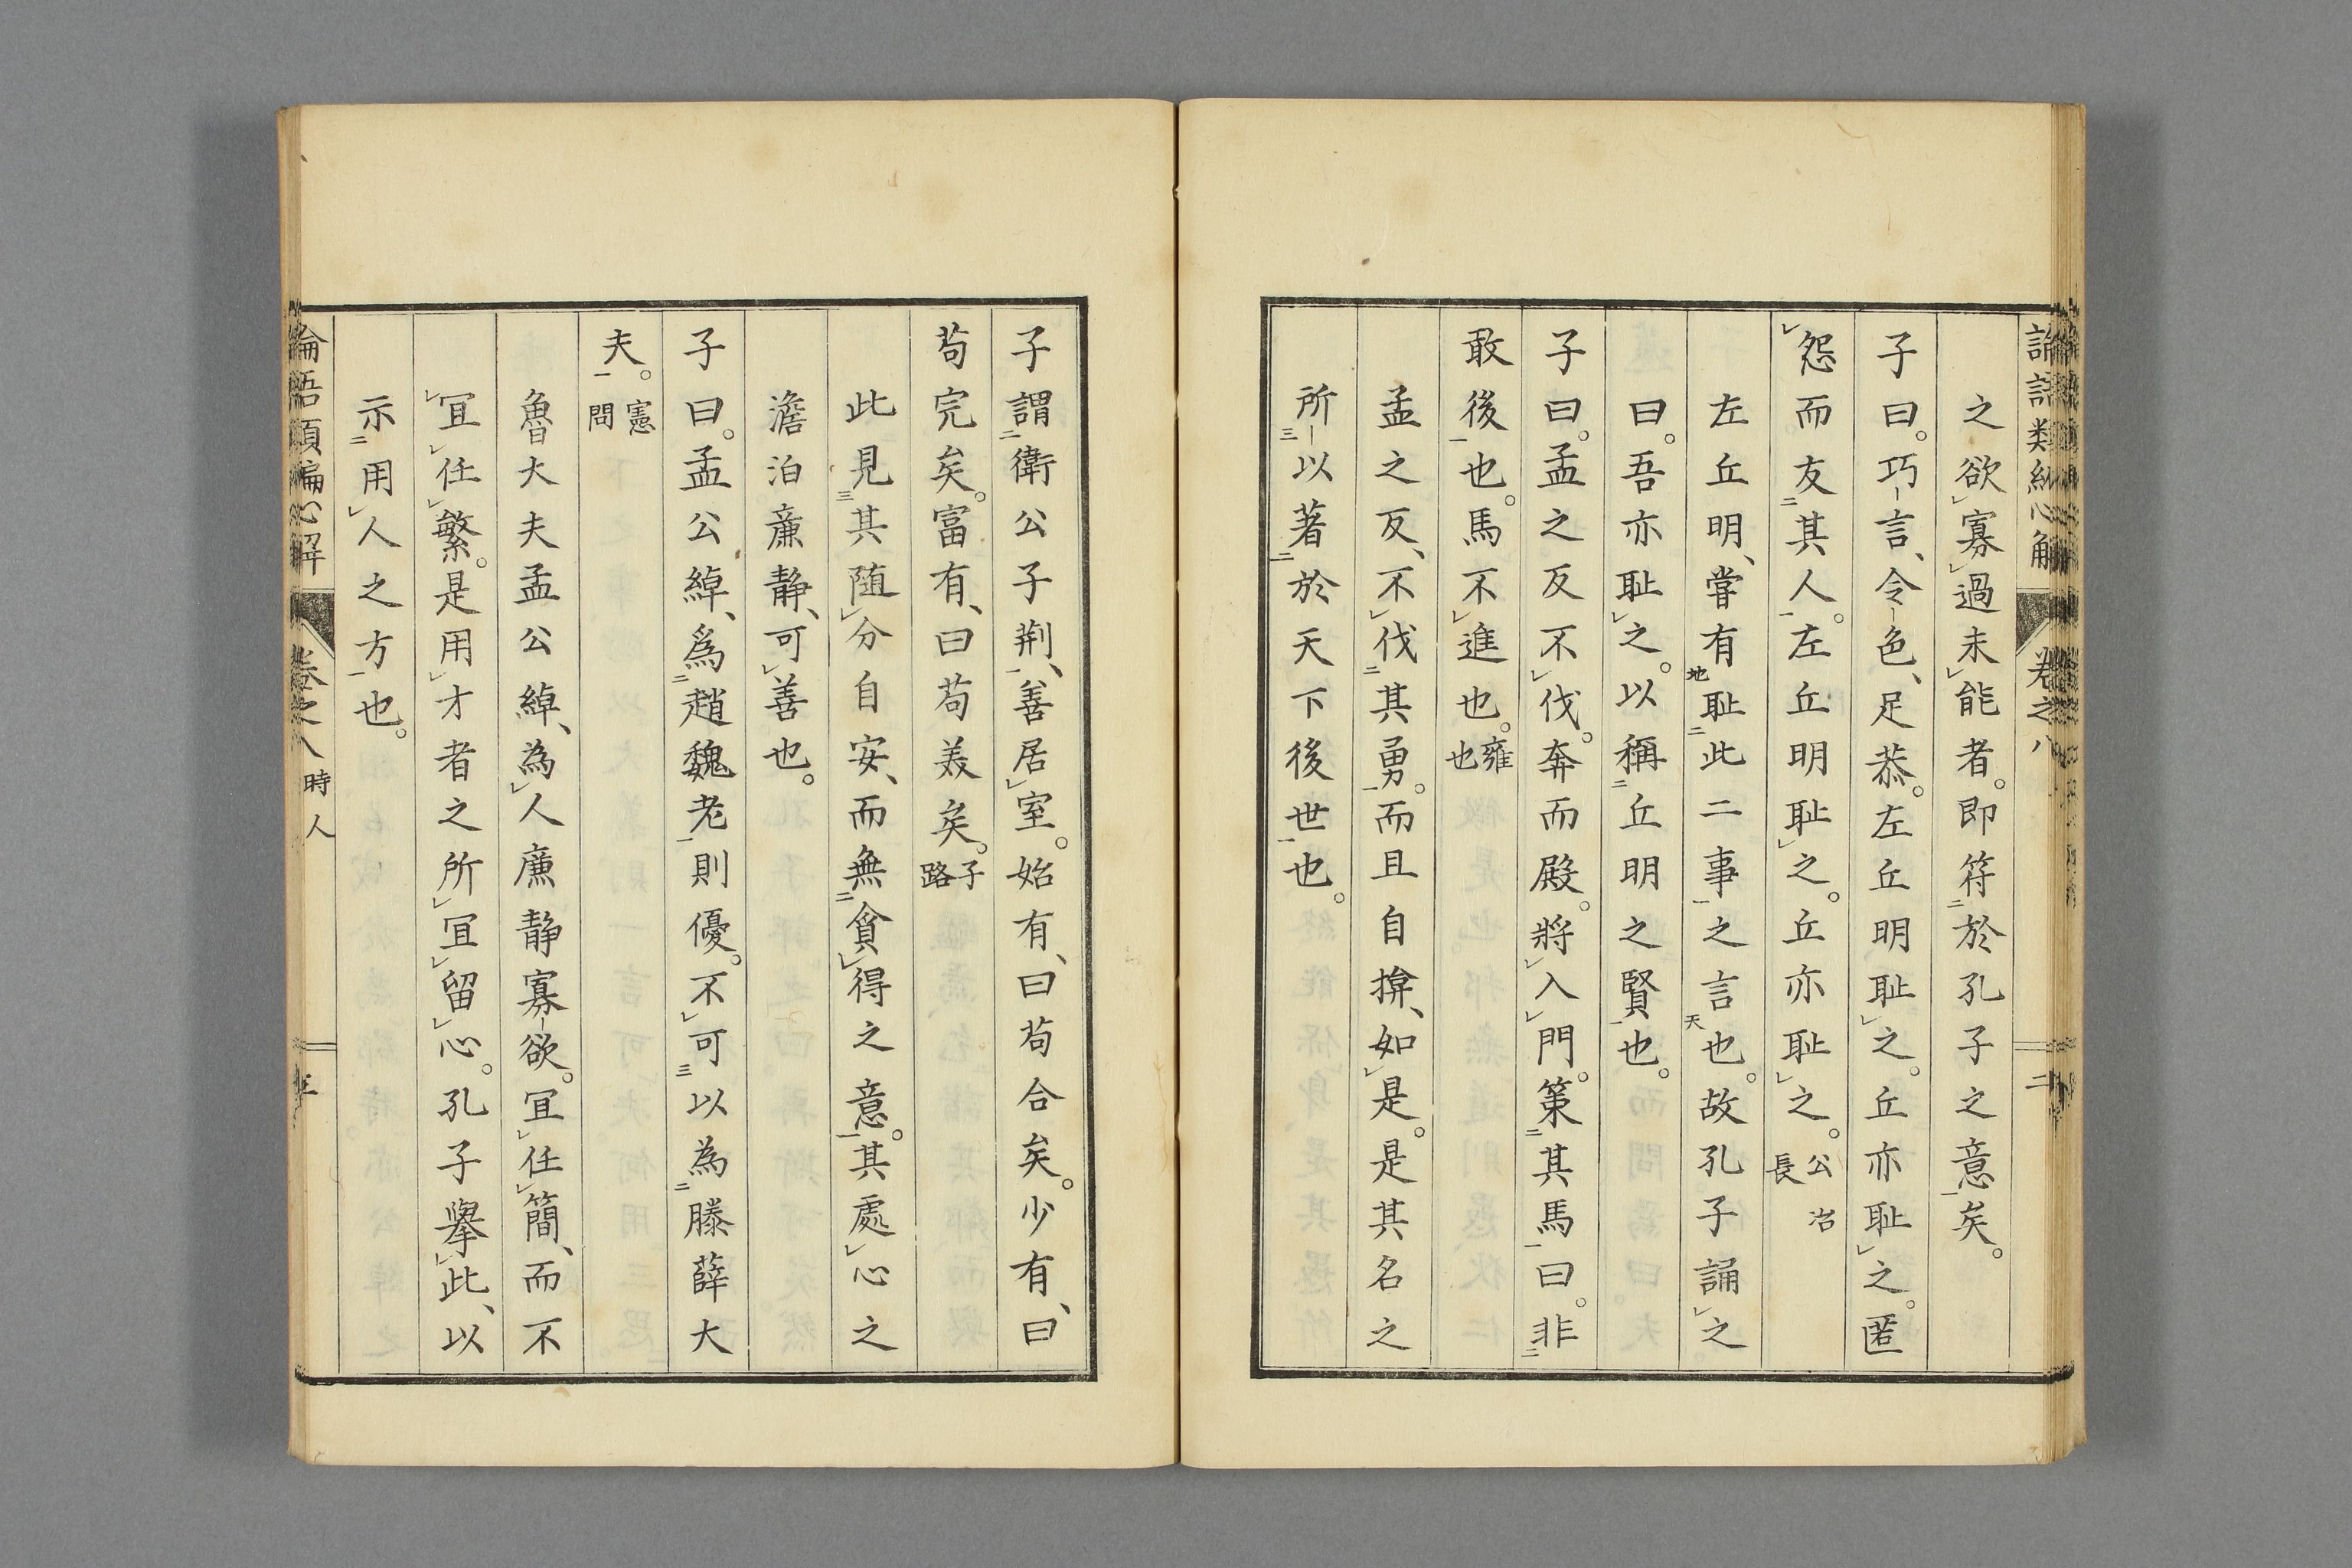 之欲寡過未能者。即符於孔子之意矣。
子曰。巧言、令色、足恭。左丘明恥之。丘亦恥之。匿
怨而友其人。左丘明恥之。丘亦恥之。公冶長
左丘明、嘗有恥此二事之言也。故孔子誦之
曰。吾亦恥之。以稱丘明之賢也。
子曰。孟之反不伐。奔而殿。將入門。策其馬曰。非
敢後也。馬不進也。雍也
孟之反、不伐其勇。而且自揜、如是。是其名之
所以著於天下後世也。
子謂衛公子荆、善居室。始有、曰苟合矣。少有、曰
苟完矣。富有、曰苟美矣。子路
此見其随分自安、而無貪得之意。其處心之
澹泊亷静、可善也。
子曰。孟公綽、爲趙魏老則優。不可以為滕薛大
夫。憲問
魯大夫孟公綽、為人亷静寡欲。冝任簡、而不
冝任繁。是用才者之所冝留心。孔子擧此、以
示用人之方也。
論語類編心解 卷之八 時人